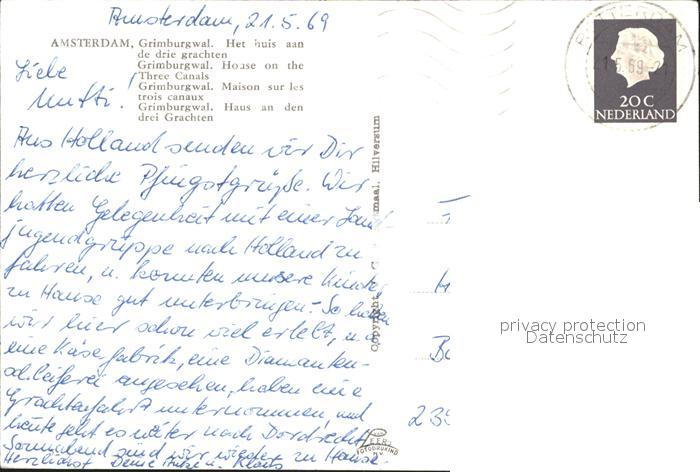 Amsterdam, 21.5.69
AMSTERDAM, Grimburgwal. Het huis aan
de drie grachten
Grimburgwal. House on the
Three Canals
Grimburgwal. Maison sur les
trois canaux
Grimburgwal. Haus an den
drei Grachten
Liebe
Mutti!
Aus Holland senden wir Dir
herzliche Pfingstgrüße. Wir
hatten Gelegenheit mit einer Land-
jugendgruppe nach Holland zu
fahren, u. konnten unsere Kinder
zu Hause gut unterbringen. So haben
wir hier schon viel erlebt, u. a.
eine Käsefabrik, eine Diamanten-
schleiferei angesehen, haben eine
Grachtenfahrt unternommen, und
heute geht es weiter nach Dordrecht.
Sonnabend sind wir wieder zu Hause.
Herzlichst Deine u. Klaus
Copyright Hilversum
20 C
NEDERLAND
privacy protection
Datenschutz